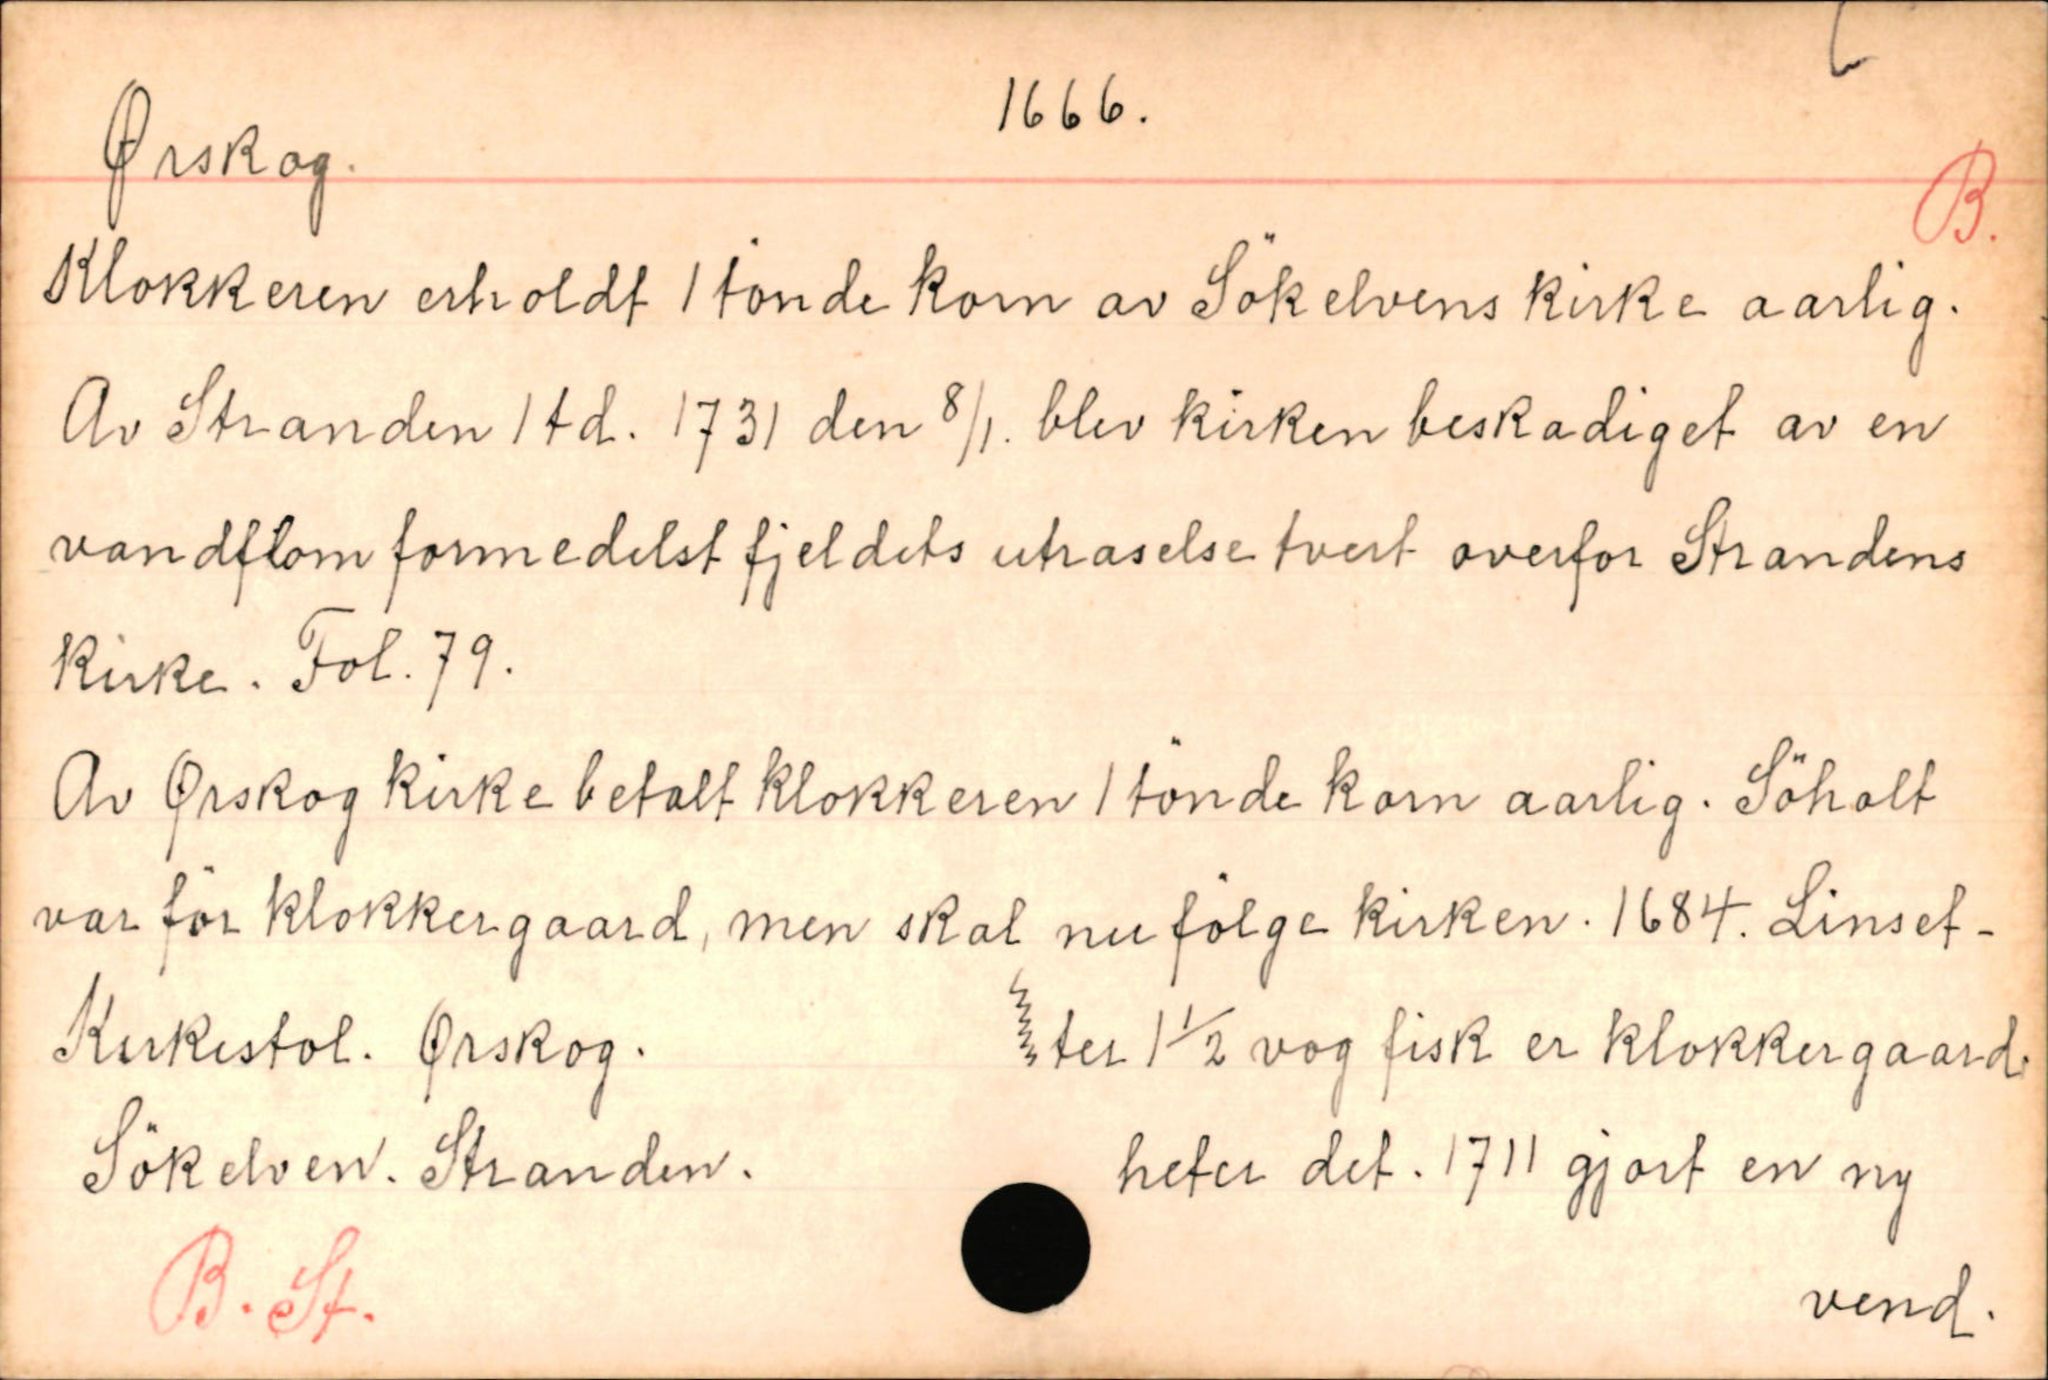 1666.
Ørskog.
B.
Klokkeren erholdt 1 tönde korn av Sökelvens kirke aarlig.
Av Stranden 1 td. 1731 den 8/1. blev kirken beskadiget av en
vandflom formedelst fjeldets utraselse tvert overfor Strandens
Kirke. Fol. 79.
Av Ørskog kirke betalt klokkeren 1 tönde korn aarlig. Söholt
var för klokkergaard, men skal nu fölge kirken. 1684. Linset-
ter 1 1/2 vog fisk er klokkergaard
heter det. 1711 gjort en ny
vend.
Kirkestol. Ørskog.
Sökelven. Stranden.
B. St.